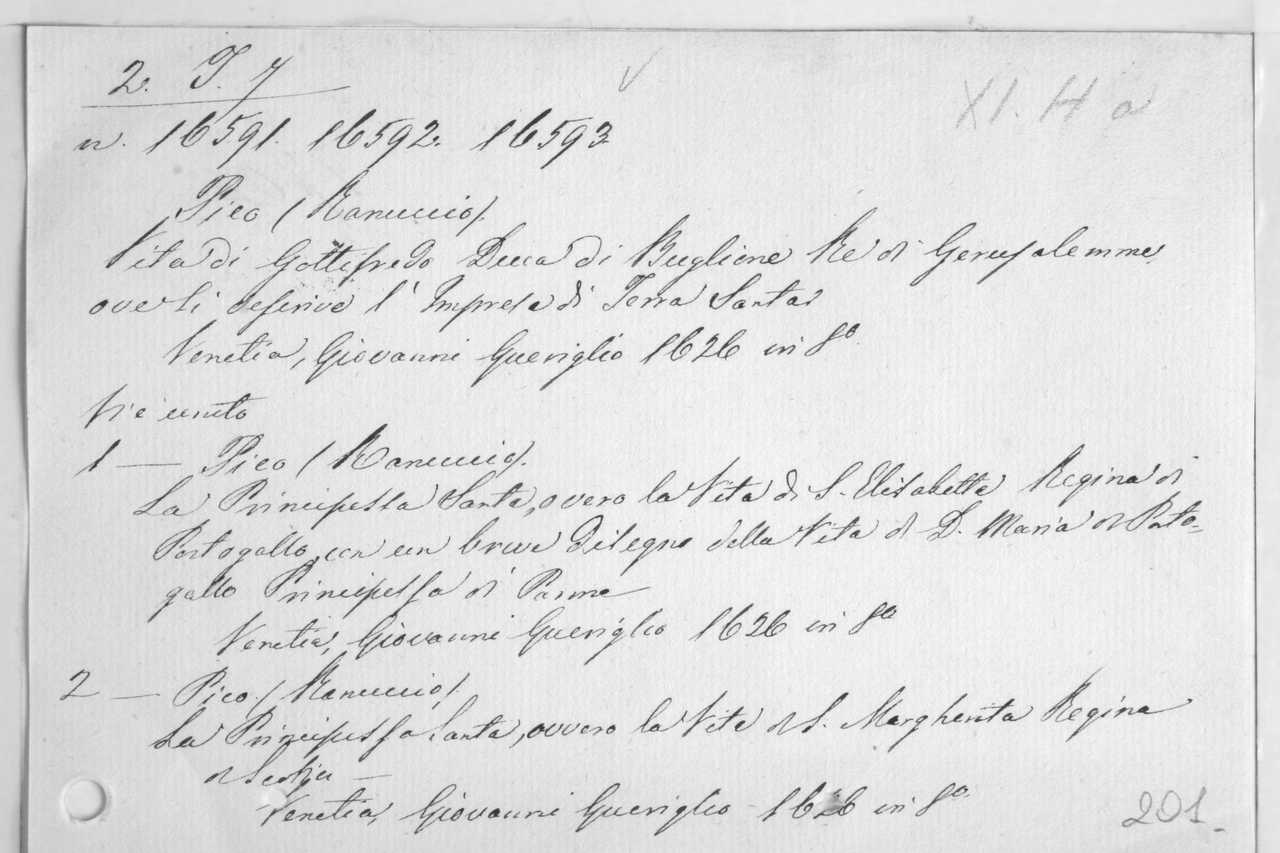 2. T. 7
XI. H a
n. 16591. 16592. 16593
Pico (Ranuccio).
Vita di Gottifredo Duca di Buglione Re di Gerusalemme
ove si descrive l'Impresa di Terra Santa
Venetia, Giovanni Gueriglio 1626 in 8o
Vi è unito
1 — Pico (Ranuccio).
La Principessa Santa, overo la Vita di S. Elisabetta Regina di
Portogallo, con un breve disegno della Vita di D. Maria di Porto=
gallo Principessa di Parma
Venetia, Giovanni Gueriglio 1626 in 8o
2 — Pico (Ranuccio).
La Principessa Santa, ovvero la Vita di S. Margherita Regina
di Scotia —
Venetia, Giovanni Gueriglio 1626 in 8o
201.